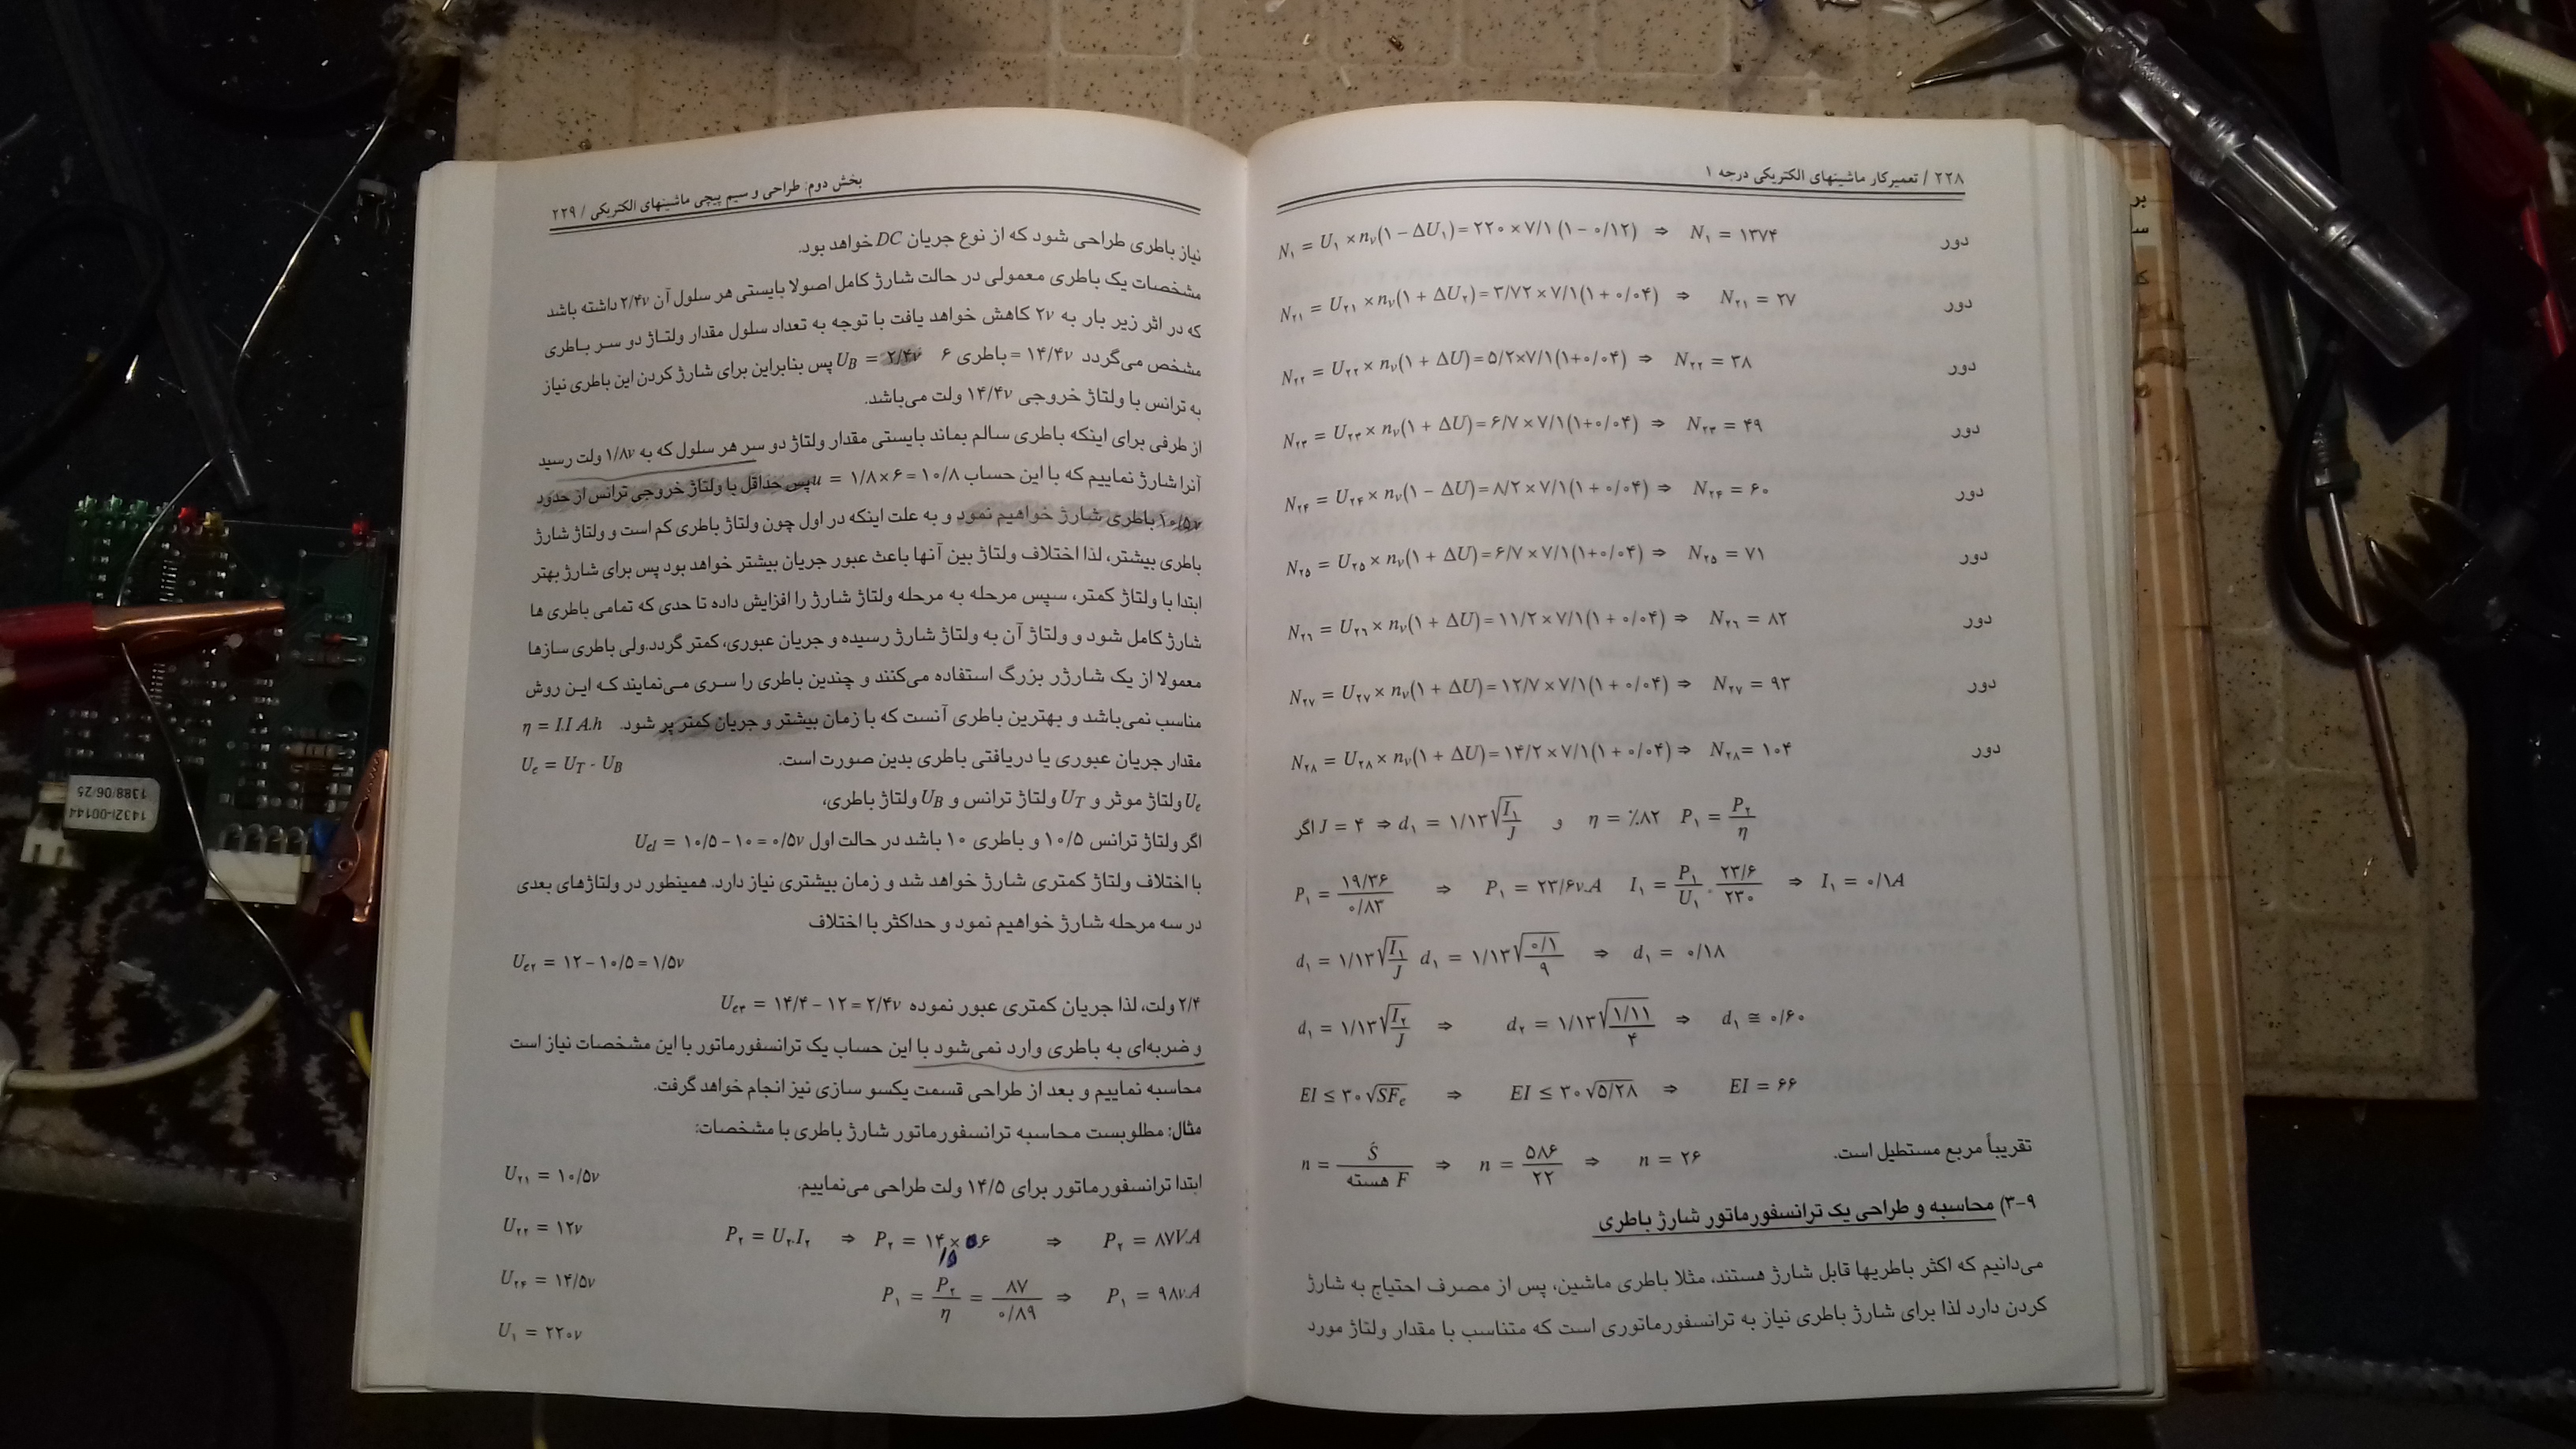 ۲۲۸ / تعمیرکار ماشینهای الکتریکی درجه ۱
N₁ = U₁ × nᵥ(۱ − ΔU₁) = ۲۲۰ × ۷/۱ (۱ − ۰/۱۲) ⇒ N₁ = ۱۳۷۴ دور
N₂₁ = U₂₁ × nᵥ(۱ + ΔU₂) = ۳/۷۲ × ۷/۱(۱ + ۰/۰۴) ⇒ N₂₁ = ۲۷ دور
N₂₂ = U₂₂ × nᵥ(۱ + ΔU) = ۵/۲×۷/۱(۱+۰/۰۴) ⇒ N₂₂ = ۳۸ دور
N₂₃ = U₂₃ × nᵥ(۱ + ΔU) = ۶/۷ × ۷/۱(۱+۰/۰۴) ⇒ N₂₃ = ۴۹ دور
N₂₄ = U₂₄ × nᵥ(۱ − ΔU) = ۸/۲ × ۷/۱(۱ + ۰/۰۴) ⇒ N₂₄ = ۶۰ دور
N₂₅ = U₂₅ × nᵥ(۱ + ΔU) = ۶/۷ × ۷/۱(۱+۰/۰۴) ⇒ N₂₅ = ۷۱ دور
N₂₆ = U₂₆ × nᵥ(۱ + ΔU) = ۱۱/۲ × ۷/۱(۱ + ۰/۰۴) ⇒ N₂₆ = ۸۲ دور
N₂₇ = U₂₇ × nᵥ(۱ + ΔU) = ۱۲/۷ × ۷/۱(۱ + ۰/۰۴) ⇒ N₂₇ = ۹۳ دور
N₂₈ = U₂₈ × nᵥ(۱ + ΔU) = ۱۴/۲ × ۷/۱(۱ + ۰/۰۴) ⇒ N₂₈ = ۱۰۴ دور
اگر J = ۴ ⇒ d₁ = ۱/۱۳√I₁/J و η = ٪۸۲ P₁ = P₂/η
P₁ = ۱۹/۳۶ / ۰/۸۳ ⇒ P₁ = ۲۳/۶v.A I₁ = P₁/U₁ . ۲۳/۶ / ۲۳۰ ⇒ I₁ = ۰/۱A
d₁ = ۱/۱۳√I₁/J d₁ = ۱/۱۳√۰/۱ / ۹ ⇒ d₁ = ۰/۱۸
d₁ = ۱/۱۳√I₂/J ⇒ d₂ = ۱/۱۳√۱/۱۱ / ۴ ⇒ d₁ ≅ ۰/۶۰
EI ≤ ۳۰√SFₑ ⇒ EI ≤ ۳۰√۵/۲۸ ⇒ EI = ۶۶
n = Ś / F هسته ⇒ n = ۵۸۶ / ۲۲ ⇒ n = ۲۶ تقریباً مربع مستطیل است.
۹-۳) محاسبه و طراحی یک ترانسفورماتور شارژ باطری
می‌دانیم که اکثر باطریها قابل شارژ هستند، مثلا باطری ماشین، پس از مصرف احتیاج به شارژ
کردن دارد لذا برای شارژ باطری نیاز به ترانسفورماتوری است که متناسب با مقدار ولتاژ مورد
بخش دوم: طراحی و سیم پیچی ماشینهای الکتریکی / ۲۲۹
نیاز باطری طراحی شود که از نوع جریان DC خواهد بود.
مشخصات یک باطری معمولی در حالت شارژ کامل اصولا بایستی هر سلول آن ۲/۴v داشته باشد
که در اثر زیر بار به ۲v کاهش خواهد یافت با توجه به تعداد سلول مقدار ولتاژ دو سر باطری
مشخص می‌گردد ۱۴/۴v = باطری ۶ U_B = ۲/۴v پس بنابراین برای شارژ کردن این باطری نیاز
به ترانس با ولتاژ خروجی ۱۴/۴v ولت می‌باشد.
از طرفی برای اینکه باطری سالم بماند بایستی مقدار ولتاژ دو سر هر سلول که به ۱/۸v ولت رسید
آنرا شارژ نماییم که با این حساب u = ۱/۸×۶ = ۱۰/۸ پس حداقل با ولتاژ خروجی ترانس از حدود
۱۰/۵v باطری شارژ خواهیم نمود و به علت اینکه در اول چون ولتاژ باطری کم است و ولتاژ شارژ
باطری بیشتر، لذا اختلاف ولتاژ بین آنها باعث عبور جریان بیشتر خواهد بود پس برای شارژ بهتر
ابتدا با ولتاژ کمتر، سپس مرحله به مرحله ولتاژ شارژ را افزایش داده تا حدی که تمامی باطری ها
شارژ کامل شود و ولتاژ آن به ولتاژ شارژ رسیده و جریان عبوری، کمتر گردد.ولی باطری سازها
معمولا از یک شارژر بزرگ استفاده می‌کنند و چندین باطری را سری می‌نمایند که این روش
مناسب نمی‌باشد و بهترین باطری آنست که با زمان بیشتر و جریان کمتر پر شود. η = I.I A.h
مقدار جریان عبوری یا دریافتی باطری بدین صورت است. Uₑ = U_T - U_B
Uₑ ولتاژ موثر و U_T ولتاژ ترانس و U_B ولتاژ باطری،
اگر ولتاژ ترانس ۱۰/۵ و باطری ۱۰ باشد در حالت اول Uₑ₁ = ۱۰/۵ − ۱۰ = ۰/۵v
با اختلاف ولتاژ کمتری شارژ خواهد شد و زمان بیشتری نیاز دارد. همینطور در ولتاژهای بعدی
در سه مرحله شارژ خواهیم نمود و حداکثر با اختلاف
Uₑ₂ = ۱۲ − ۱۰/۵ = ۱/۵v
۲/۴ ولت، لذا جریان کمتری عبور نموده Uₑ₃ = ۱۴/۴ − ۱۲ = ۲/۴v
و ضربه‌ای به باطری وارد نمی‌شود با این حساب یک ترانسفورماتور با این مشخصات نیاز است
محاسبه نماییم و بعد از طراحی قسمت یکسو سازی نیز انجام خواهد گرفت.
مثال: مطلوبست محاسبه ترانسفورماتور شارژ باطری با مشخصات:
U₂₁ = ۱۰/۵v
ابتدا ترانسفورماتور برای ۱۴/۵ ولت طراحی می‌نماییم.
U₂₂ = ۱۲v
P₂ = U₂.I₂ ⇒ P₂ = ۱۴ × ۶ ⇒ P₂ = ۸۷V.A
/۵
U₂₄ = ۱۴/۵v
P₁ = P₂/η = ۸۷ / ۰/۸۹ ⇒ P₁ = ۹۸v.A
U₁ = ۲۲۰v
1432I-00144
1388/06/25